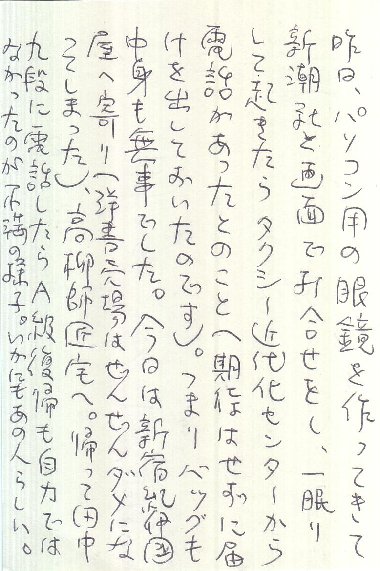 昨日、パソコン用の眼鏡を作ってきて
新潮社と画面でお合せをし、一眠り
して起きたらタクシー近代化センターから
電話があったとのこと（期待はせずに届
けを出しておいたのです）。つまりバッグも
中身も無事でした。今日は新宿紀伊國
屋へ寄り（洋書売場はぜんぜんダメにな
ってしまった）、高柳師匠宅へ。帰って田中
九段に電話したらA級復帰も自力では
なかったのが不満の様子。いかにもあの人らしい。